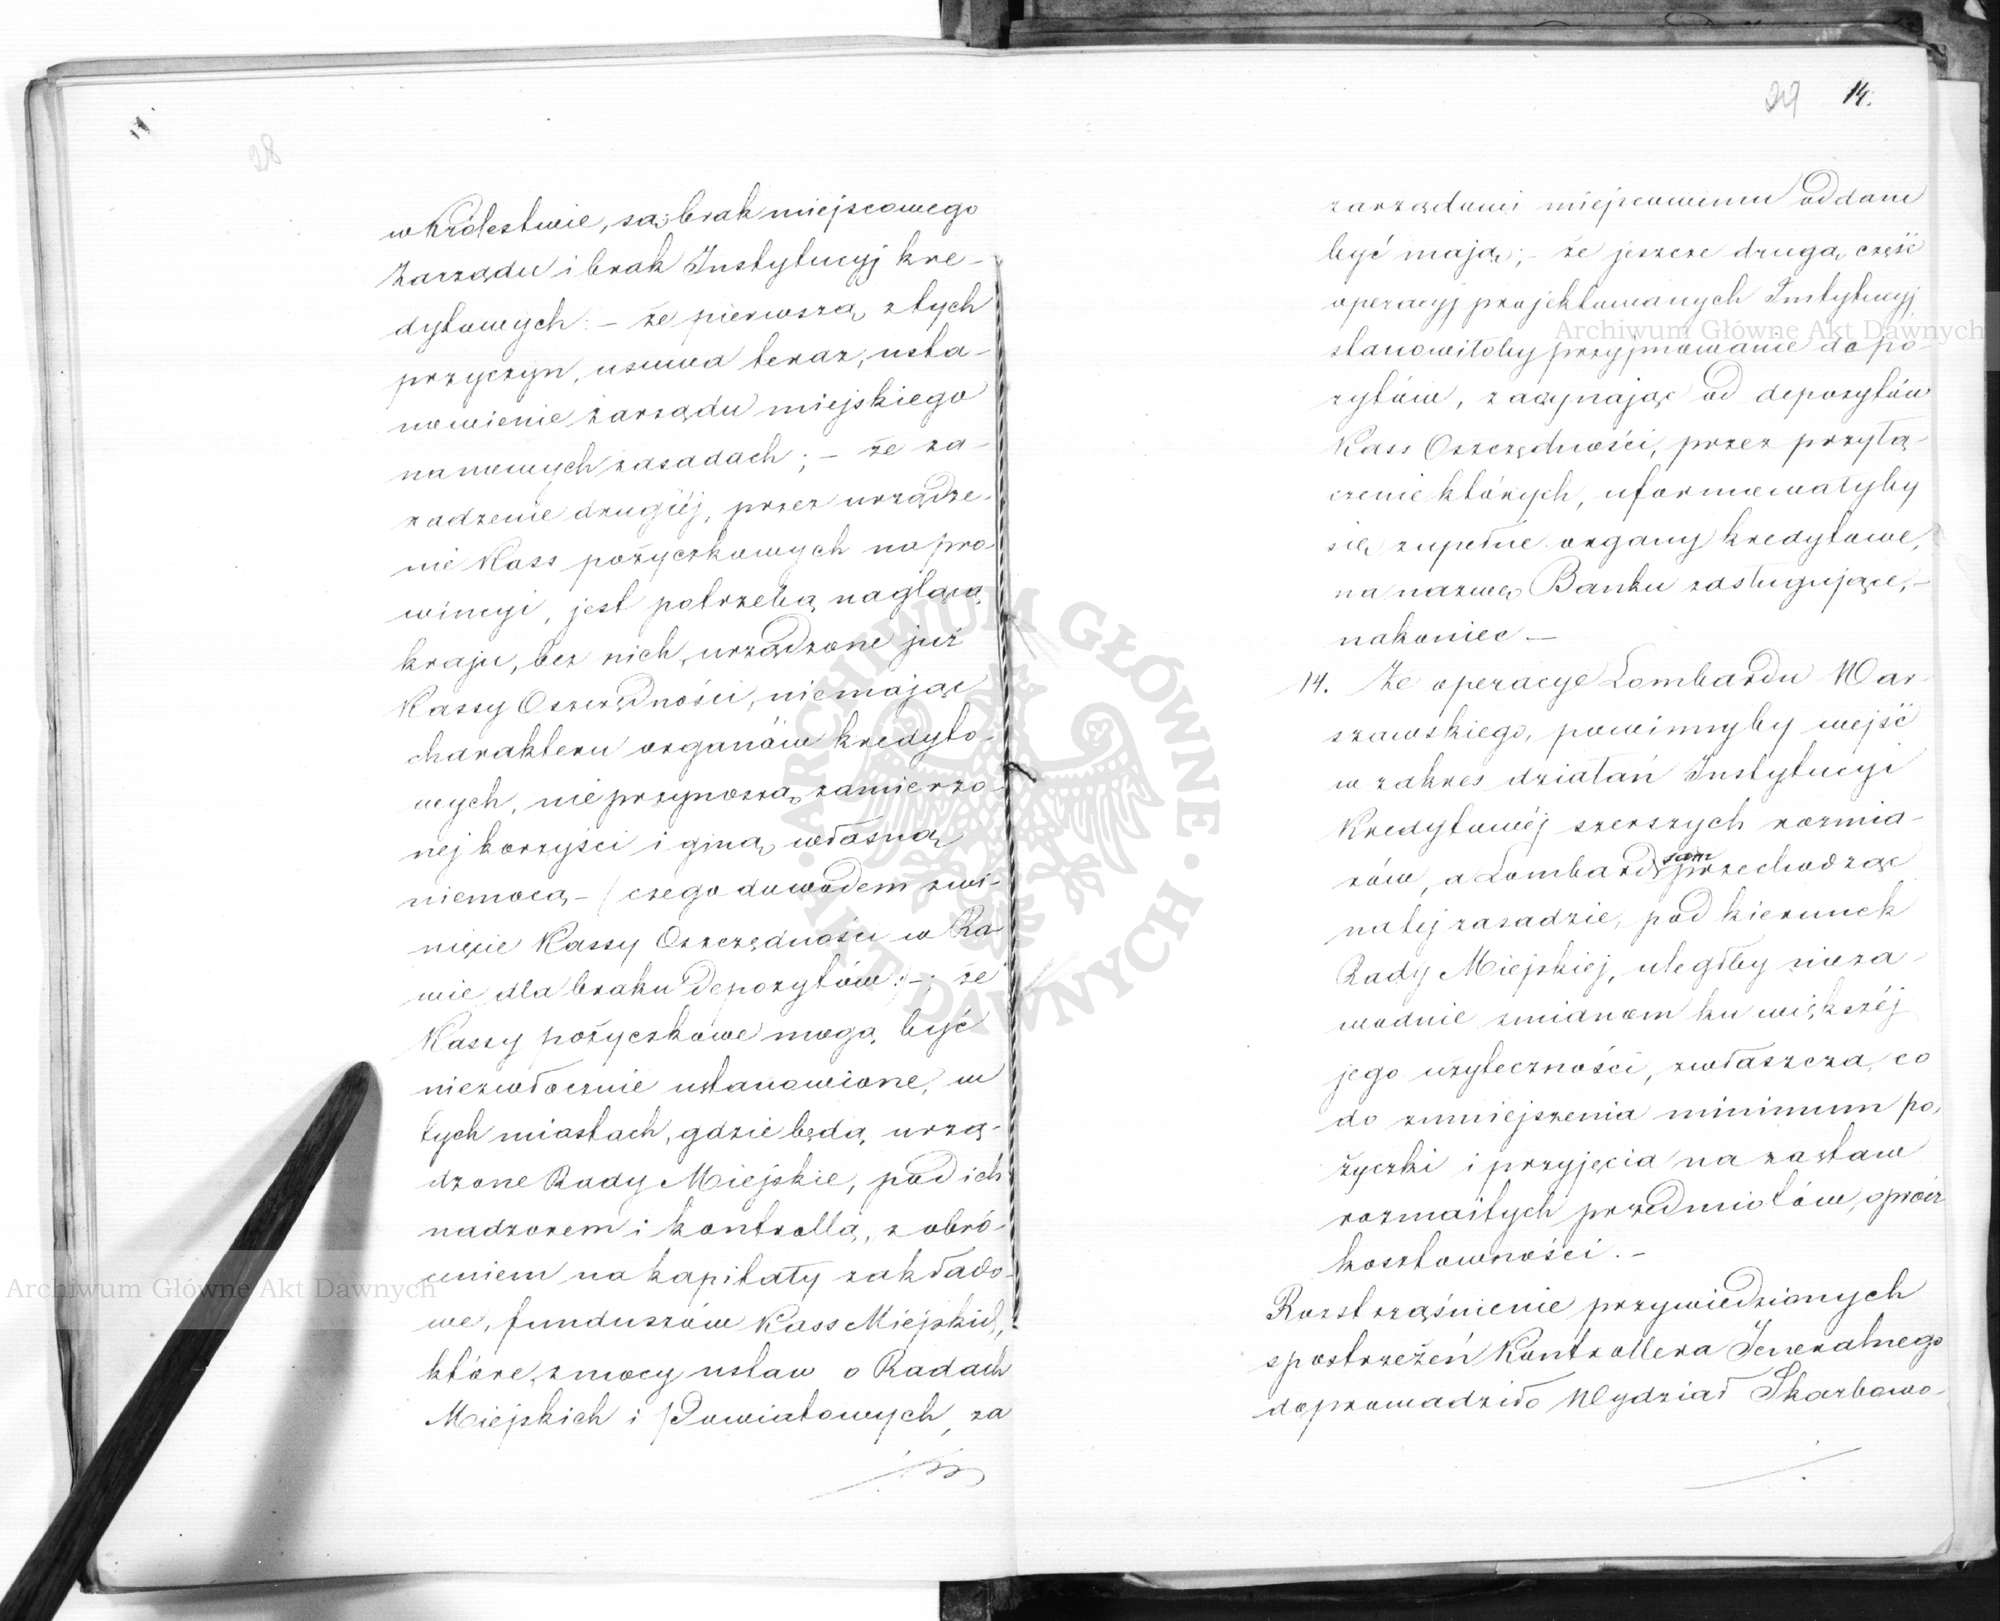 28
w Królestwie, są brak miejscowego
Zarządu i brak Instytucyj kre-
dytowych: – że pierwszą z tych
przyczyn, usuwa teraz, usta-
nowienie zarządu miejskiego
na nowych zasadach; – że za-
radzenie drugiéj, przez urządze-
nie Kass pożyczkowych na pro-
wincyi, jest potrzebą naglącą
kraju, bez nich, urządzone już
Kassy Oszczędności, niemając
charakteru organów kredyto-
wych, nieprzynoszą zamierzo-
nej korzyści i giną własną
niemocą – /: czego dowodem zwi-
nięcie Kassy Oszczędności w Ra-
wie dla braku depozytów :/ –; że
Kassy pożyczkowe mogą być
niezwłocznie ustanowione, w
tych miastach, gdzie będą urzą-
dzone Rady Miejskie, pod ich
nadzorem i kontrollą, z obró-
ceniem na kapitały zakłado-
we, funduszów Kass Miejskich,
które, z mocy ustaw o Radach
Miejskich i Powiatowych, za
29 14.
zarządowi miejscowemu oddane
być mają; – że jeszcze drugą część
operacyj projektowanych Instytucyj
stanowiłoby przyjmowanie depo-
zytów, zaczynając od depozytów
Kass Oszczędności, przez przyłą-
czenie których, uformowałyby
się zupełnie organy kredytowe,
na nazwę Banku zasługujące, –
nakoniec. –
14. Że operacye Lombardu War-
szawskiego, powinnyby wejść
w zakres działań Instytucyi
Kredytowéj szerszych rozmia-
rów, a Lombard sam przechodząc
na tej zasadzie, pod kierunek
Rady Miejskiej, uległby nieza-
wodnie zmianom ku większéj
jego użyteczności, zwłaszcza, co
do zmniejszenia minimum po-
życzki i przyjęcia na zastaw
rozmaitych przedmiotów, oprócz
kosztowności. –
Rozstrząśnienie przywiedzionych
spostrzeżeń Kontrollera Jeneralnego
doprowadziło Wydział Skarbowo-
Archiwum Główne Akt Dawnych
Archiwum Główne Akt Dawnych
ARCHIWUM GŁÓWNE · AKT DAWNYCH ·